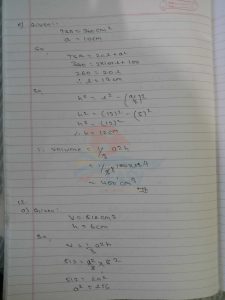 Given:
TSA = 360 cm²
a = 10cm
So,
TSA = 2al + a²
360 = 2×10×l + 100
260 = 20 l
∴ l = 13cm
So,
h² = l² - (a/2)²
h² = (13)² - (5)²
h² = (12)²
∴ h = 12cm
∴ Volume = 1/3 a²h
= 400 cm³
a) Given:
V = 512 cm³
h = 6cm
So,
V = 1/3 a²h
512 = a²/3 × 6
512 = 2a²
a² = 256